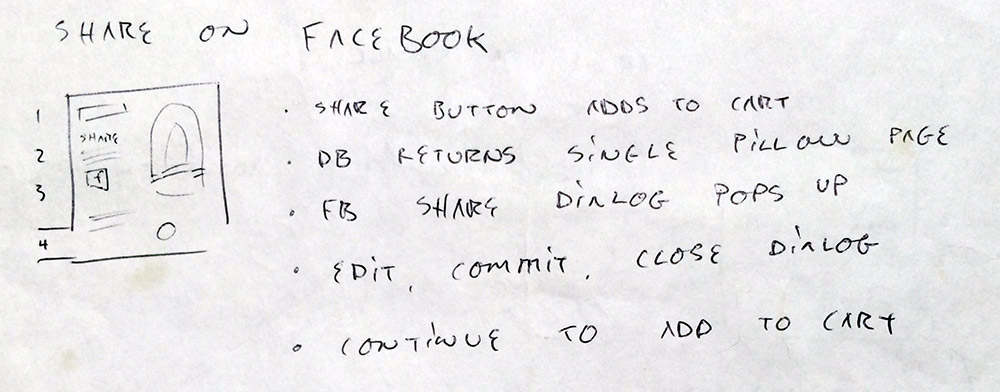 SHARE ON FACEBOOK
1
SHARE
2
3
4
• SHARE BUTTON ADDS TO CART
• DB RETURNS SINGLE PILLOW PAGE
• FB SHARE DIALOG POPS UP
• EDIT, COMMIT, CLOSE DIALOG
• CONTINUE TO ADD TO CART